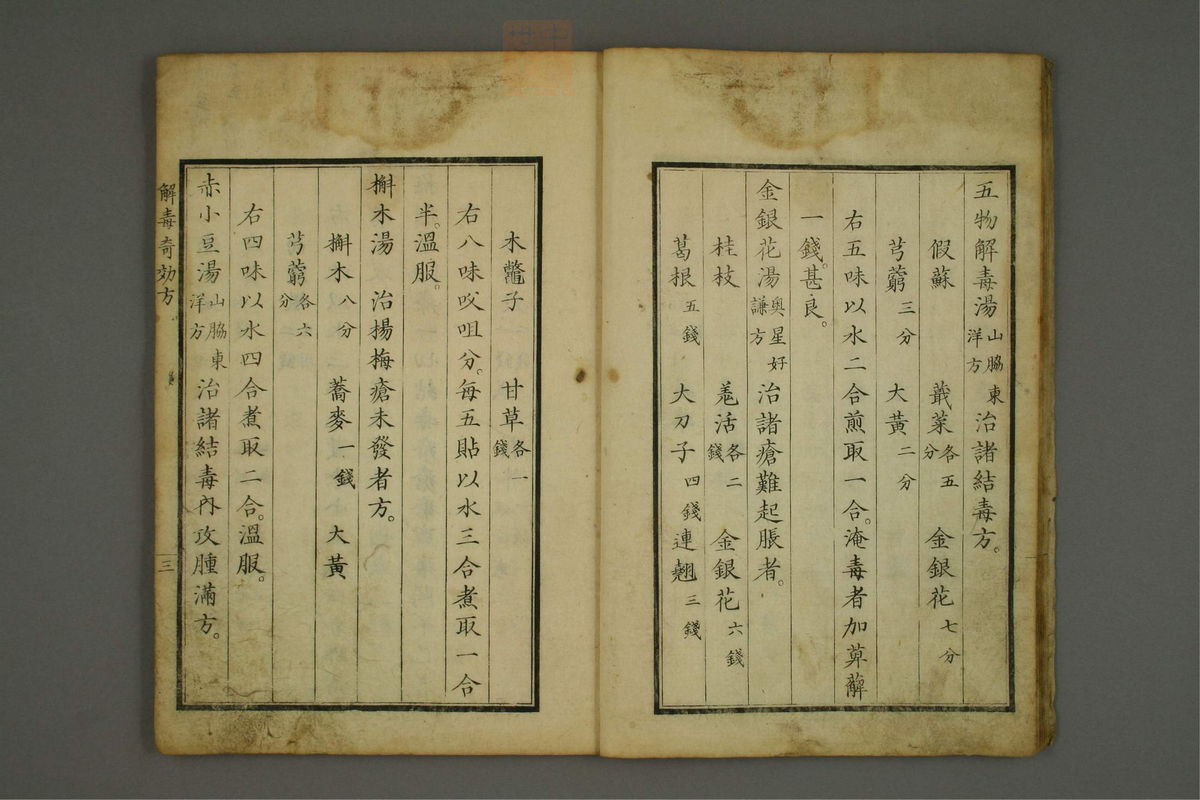 五物解毒湯山脇東洋方治諸結毒方。
假蘇 蕺菜各五分 金銀花七分
芎藭三分 大黃二分
右五味以水二合煎取一合。淹毒者加萆薢
一錢。甚良。
金銀花湯奧星好謙方治諸瘡難起脹者。
桂枝 羗活各二錢 金銀花六錢
葛根五錢 大刀子四錢 連翹三錢
木鼈子 甘草各一錢
右八味㕮咀分。每五貼以水三合煮取一合
半。溫服。
槲木湯 治楊梅瘡未發者方。
槲木八分 蕎麥一錢 大黃
芎藭各六分
右四味以水四合煮取二合。溫服。
赤小豆湯山脇東洋方治諸結毒內攻腫滿方。
解毒奇効方
三